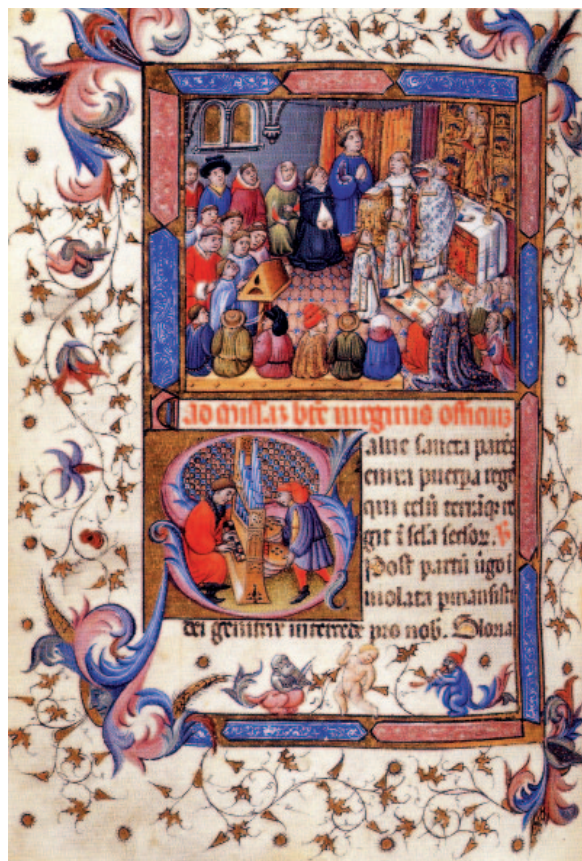 ad missaz bte virginis officiuz
alue sancta parēs
enixa puerpa rege
qui celū terrāq; re
git ī scla sclor. ꝟ
Post partū v̄go i
uiolata pmansisti
dei genitrix intercede pro nob. Gloria